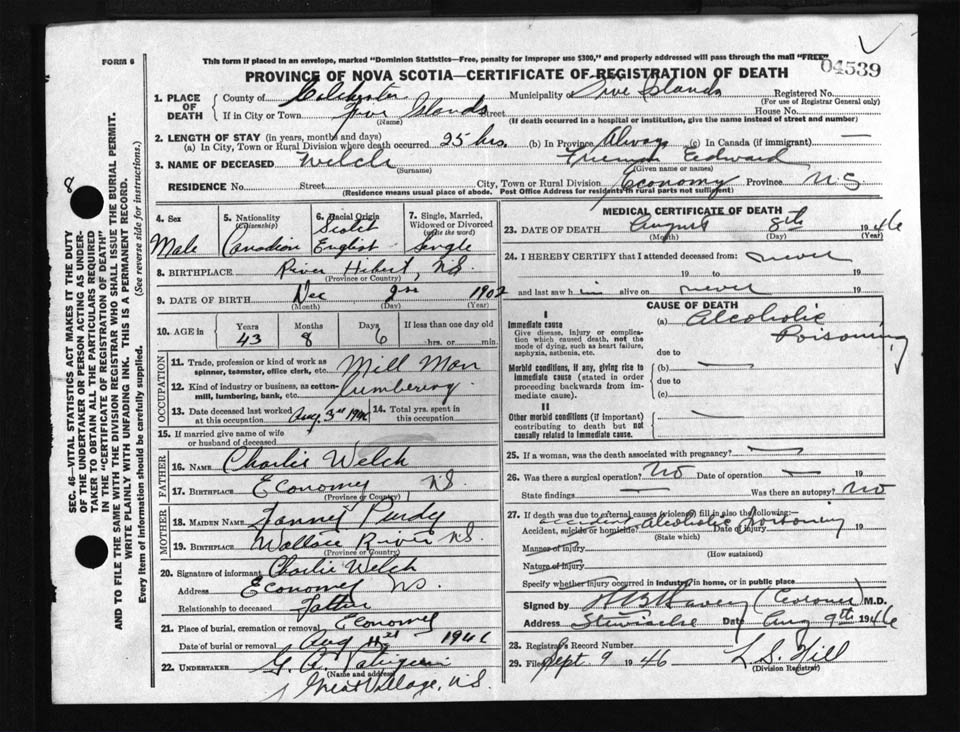 FORM 6
This form if placed in an envelope, marked "Dominion Statistics—Free, penalty for improper use $300," and properly addressed will pass through the mail "FREE"
04539
PROVINCE OF NOVA SCOTIA—CERTIFICATE OF REGISTRATION OF DEATH
1. PLACE OF DEATH
County of Colchester Municipality of Five Islands Registered No.
(For use of Registrar General only)
If in City or Town Five Islands Street House No.
(Name) (If death occurred in a hospital or institution, give the name instead of street and number)
2. LENGTH OF STAY (in years, months and days)
(a) In City, Town or Rural Division where death occurred 25 hrs. (b) In Province Always (c) In Canada (if immigrant) —
3. NAME OF DECEASED Welch Freeman Edward
(Surname) (Given name or names)
RESIDENCE No. Street City, Town or Rural Division Economy Province N.S
(Residence means usual place of abode. Post Office Address for residents in rural parts not sufficient)
4. Sex
Male
5. Nationality
(Citizenship)
Canadian
6. Racial Origin
Scotch
English
7. Single, Married, Widowed or Divorced
(Write the word)
Single
8. BIRTHPLACE River Hibert, N.S.
(Province or Country)
9. DATE OF BIRTH Dec 2nd 1902
(Month) (Day) (Year)
10. AGE in
Years Months Days If less than one day
43 8 6 hrs. or min.
OCCUPATION
11. Trade, profession or kind of work as spinner, teamster, office clerk, etc. Mill Man
12. Kind of industry or business, as cotton-mill, lumbering, bank, etc. lumbering.
13. Date deceased last worked at this occupation Aug 3rd 1946
14. Total yrs. spent in this occupation
15. If married give name of wife or husband of deceased
FATHER
16. NAME Charlie Welch
17. BIRTHPLACE Economy N.S.
(Province or Country)
MOTHER
18. MAIDEN NAME Fanney Purdy
19. BIRTHPLACE Wallace River N.S.
(Province or Country)
20. Signature of informant Charlie Welch
Address Economy N.S.
Relationship to deceased Father
21. Place of burial, cremation or removal Economy
Date of burial or removal Aug 1946
22. UNDERTAKER G. A.
(Name and address)
Great Village, N.S.
MEDICAL CERTIFICATE OF DEATH
23. DATE OF DEATH August 8th 1946
(Month) (Day) (Year)
24. I HEREBY CERTIFY that I attended deceased from: never
19 to 19
and last saw him alive on never 19
CAUSE OF DEATH
I
Immediate cause
Give disease, injury or complication which caused death, not the mode of dying, such as heart failure, asphyxia, asthenia, etc.
(a) Alcoholic Poisoning
due to
Morbid conditions, if any, giving rise to immediate cause (stated in order proceeding backwards from immediate cause)
(b) —
due to
(c)
II
Other morbid conditions (if important) contributing to death but not causally related to immediate cause.
25. If a woman, was the death associated with pregnancy? —
26. Was there a surgical operation? NO Date of operation — 19
State findings — Was there an autopsy? NO
27. If death was due to external causes (violence) fill in also the following:—
Accident, suicide or homicide? accident Alcoholic Poisoning Date of injury 19
(State which)
Manner of injury
(How sustained)
Nature of injury
Specify whether injury occurred in industry, in home, or in public place
Signed by (Coroner) M.D.
Address Stewiacke Date Aug 9th 1946
28. Registrar's Record Number
29. Filed Sept. 9 1946 L. S. Hill
(Division Registrar)
8
SEC. 46—VITAL STATISTICS ACT MAKES IT THE DUTY
OF THE UNDERTAKER OR PERSON ACTING AS UNDER-
TAKER TO OBTAIN ALL THE PARTICULARS REQUIRED
IN THE "CERTIFICATE OF REGISTRATION OF DEATH"
AND TO FILE THE SAME WITH THE DIVISION REGISTRAR WHO SHALL ISSUE THE BURIAL PERMIT.
WRITE PLAINLY WITH UNFADING INK. THIS IS A PERMANENT RECORD.
Every item of information should be carefully supplied. (See reverse side for instructions.)